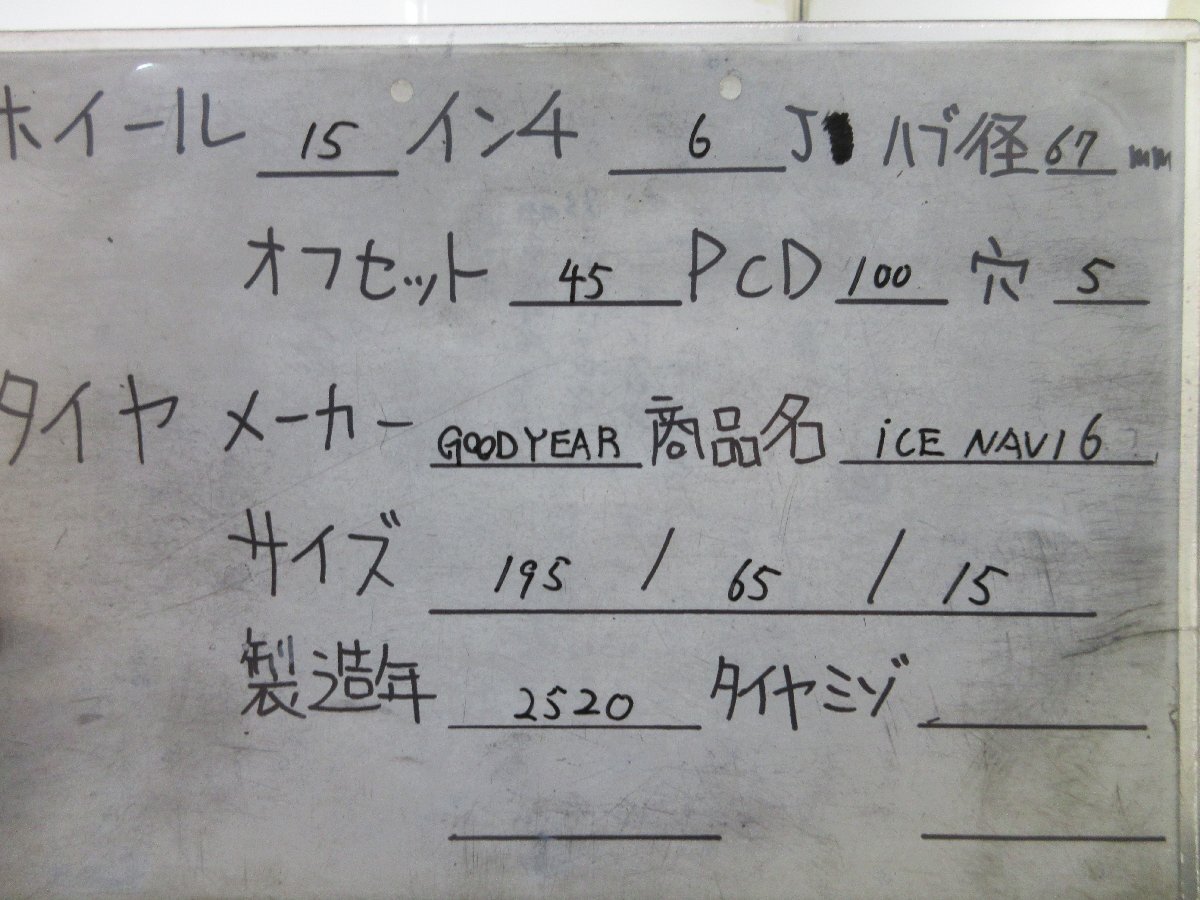 ホイール 15 インチ 6 J ハブ径 67 mm
オフセット 45 PCD 100 穴 5
タイヤ メーカー GOODYEAR 商品名 iCE NAVI 6
サイズ 195 / 65 / 15
製造年 2520 タイヤミゾ